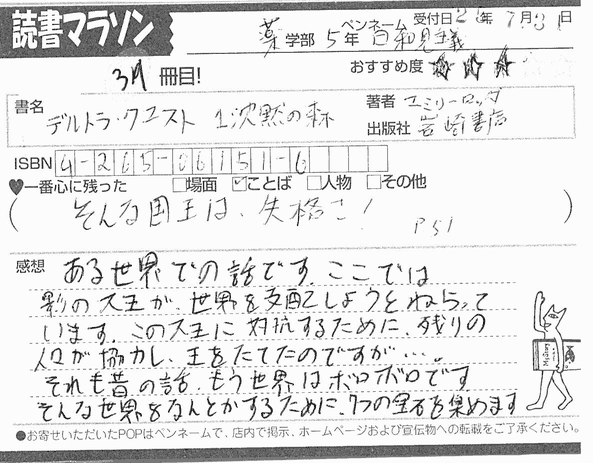 読書マラソン
ペンネーム 受付日2 年7月31日
薬学部5年 日和見主義
冊目!
おすすめ度 ★★★
書名 デルトラ・クエスト 1沈黙の森
著者 エミリー・ロッダ
出版社 岩崎書店
ISBN 4-265-06151-6
♥一番心に残った □場面 ☑ことば □人物 □その他
(そんな国王は、失格さ! P51)
感想 ある世界での話です。ここでは
影の大王が、世界を支配しようとねらって
います。この大王に対抗するために、残りの
人々が協力し、王をたてたのですが…。
それも昔の話。もう世界はボロボロです
そんな世界をなんとかするために、7つの宝石を集めます
●お寄せいただいたPOPはペンネームで、店内で掲示、ホームページおよび宣伝物への転載をご了承ください。